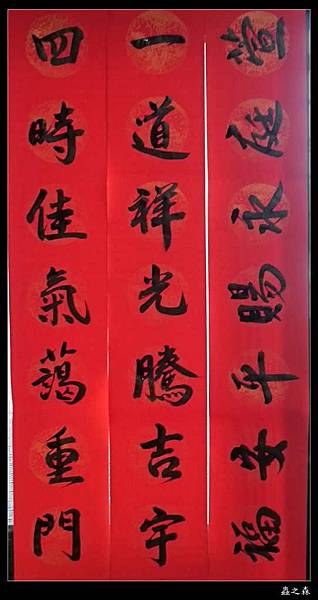 萱庭永賜平安福
一道祥光騰吉宇
四時佳氣藹重門
蟲之森